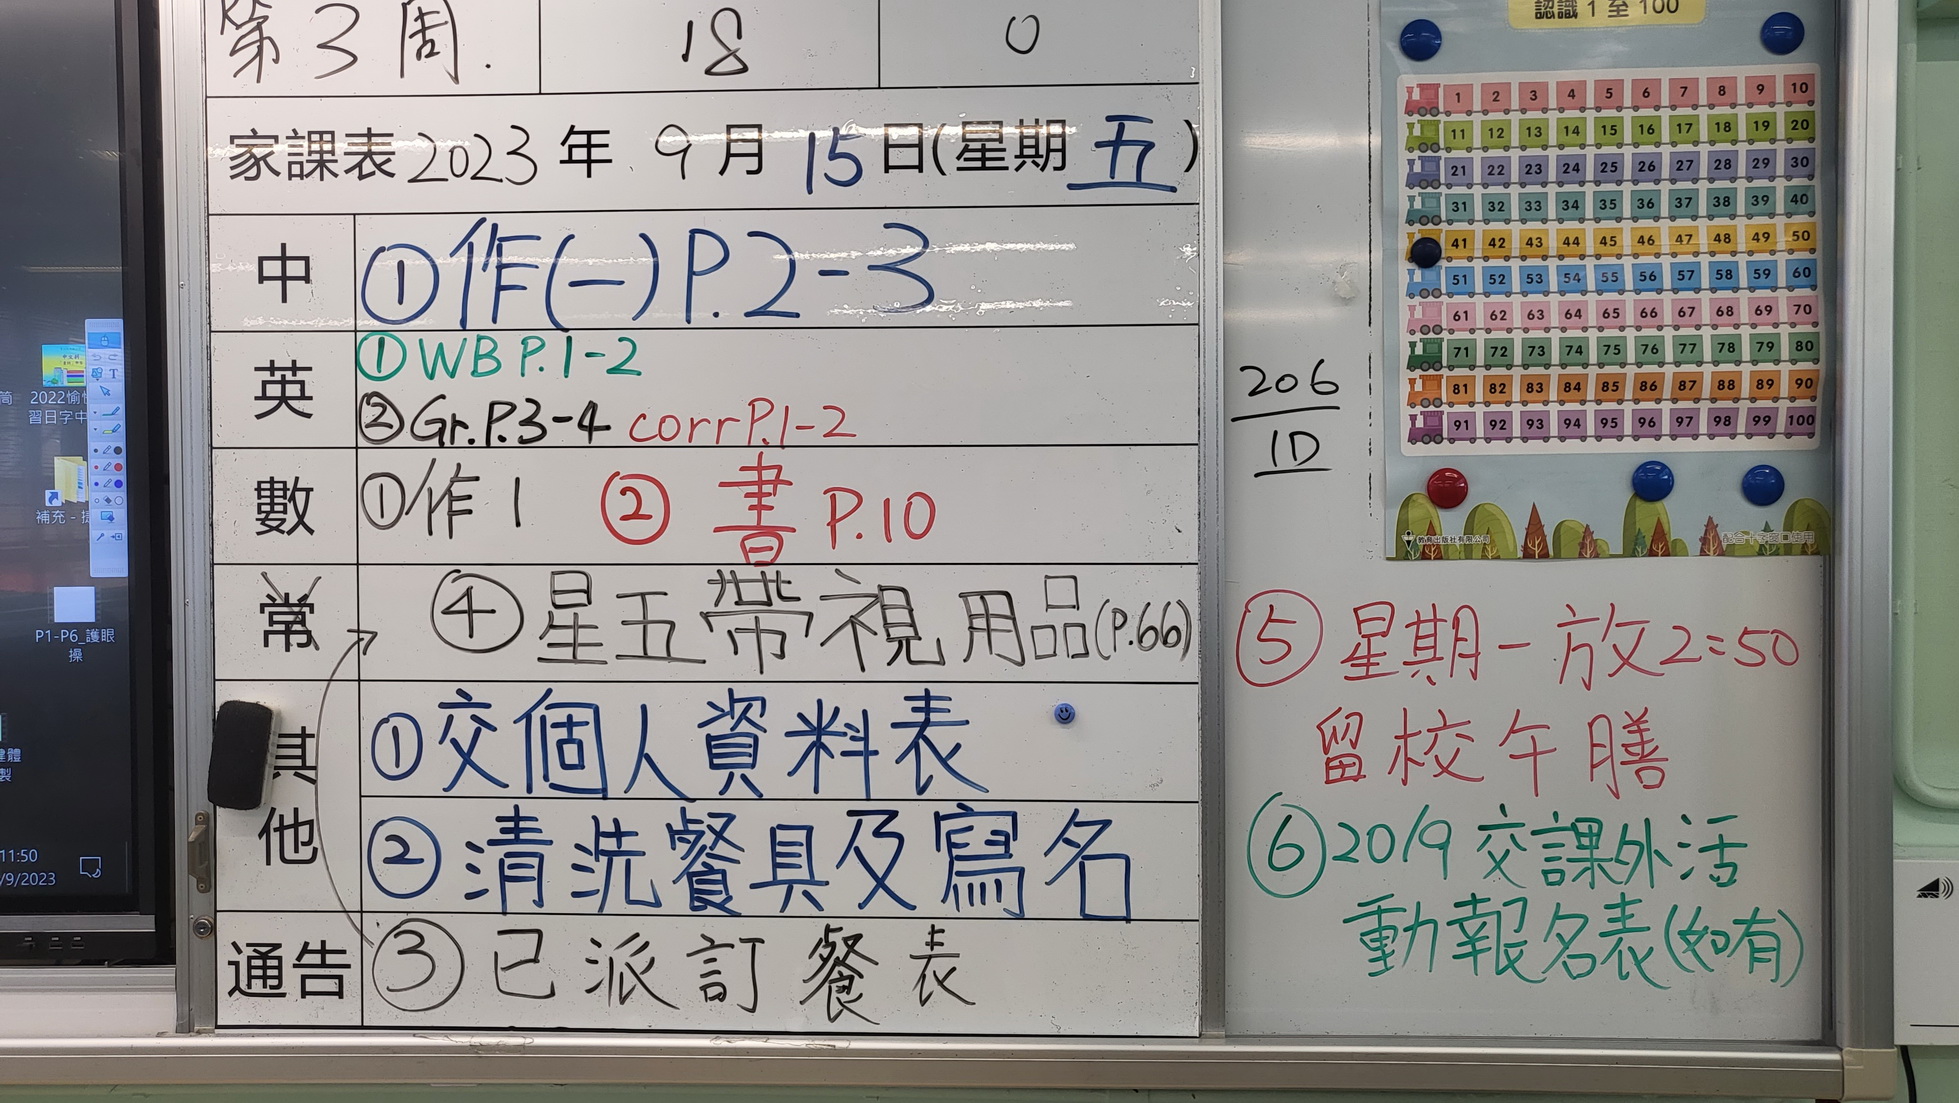 第3周.
18
0
家課表2023年9月15日(星期五)
中 ①作(一)P.2-3
英 ①WB P.1-2
②Gr.P.3-4 corrP.1-2
數 ①作1 ②書 P.10
常 ④星五帶視用品(P.66)
其他 ①交個人資料表
②清洗餐具及寫名
通告 ③已派訂餐表
206
1D
⑤星期一放2:50
留校午膳
⑥20/9交課外活
動報名表(如有)
認識1至100
1 2 3 4 5 6 7 8 9 10
11 12 13 14 15 16 17 18 19 20
21 22 23 24 25 26 27 28 29 30
31 32 33 34 35 36 37 38 39 40
41 42 43 44 45 46 47 48 49 50
51 52 53 54 55 56 57 58 59 60
61 62 63 64 65 66 67 68 69 70
71 72 73 74 75 76 77 78 79 80
81 82 83 84 85 86 87 88 89 90
91 92 93 94 95 96 97 98 99 100
教育出版社有限公司
2022愉
習日字中
補充 -
P1-P6_護眼
操
健體
製
11:50
/9/2023